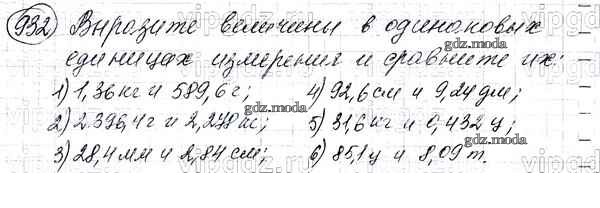 932 Выразите величины в одинаковых
единицах измерения и сравните их:
1) 1,36 кг и 589,6 г; 4) 92,6 см и 9,24 дм;
2) 2396,4 г и 2,278 кг; 5) 31,6 кг и 0,432 ц;
3) 28,4 мм и 2,84 см; 6) 85,1 ц и 8,09 т.
gdz.moda
gdz.moda
gdz.moda
gdz.moda